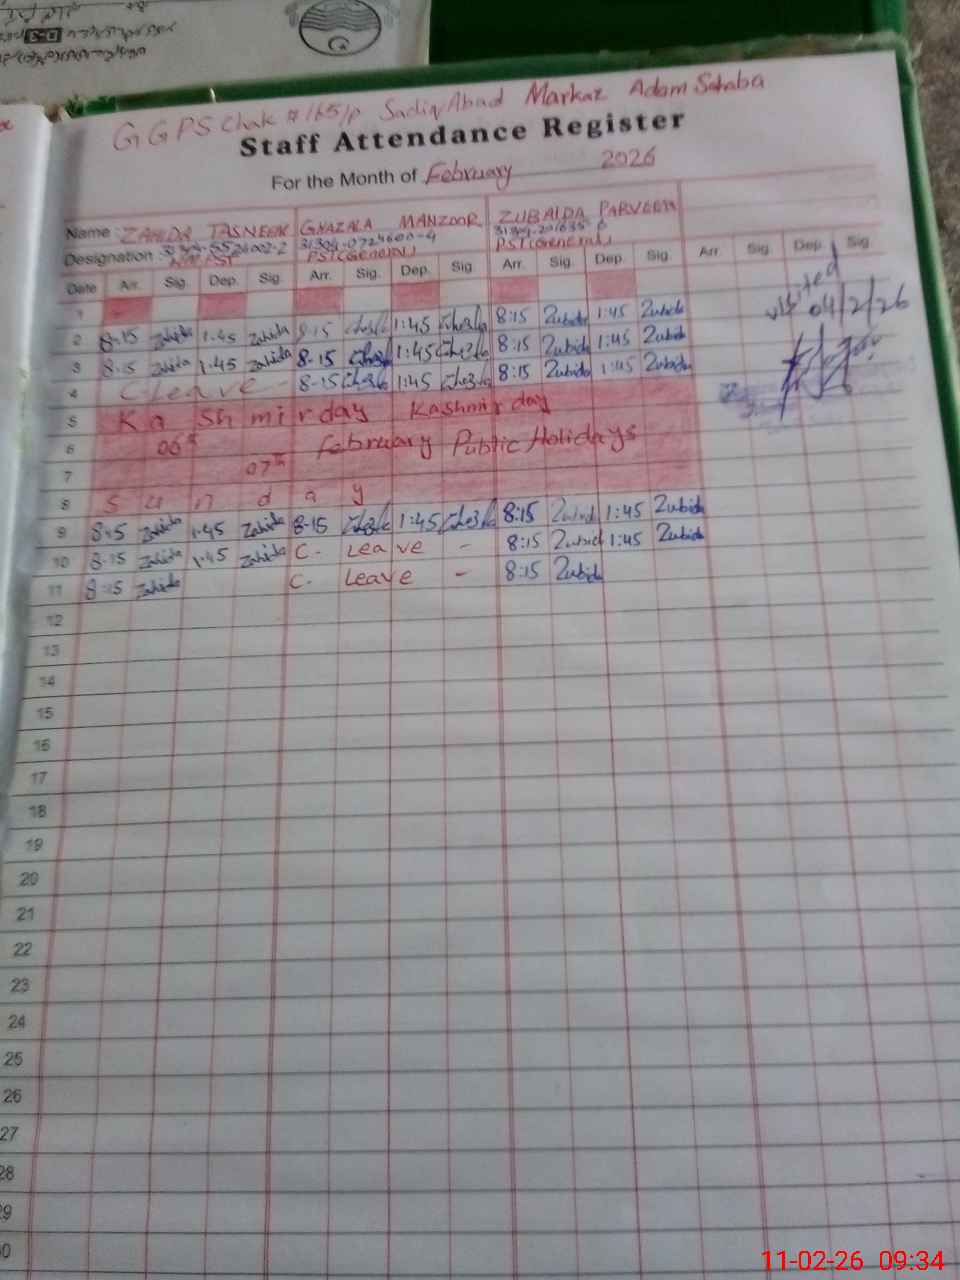 D-3
G G P S Chak # 165/P Sadiq Abad Markaz Adam Sahaba
Staff Attendance Register
For the Month of February 2026
Name : ZAHIDA TASNEEM GHAZALA MANZOOR ZUBAIDA PARVEEN
Designation : PST(General) PST(General)
Date Arr. Sig. Dep. Sig. Arr. Sig. Dep. Sig. Arr. Sig. Dep. Sig. Arr. Sig. Dep. Sig.
1
visited
04/2/26
2 8-15 Zahida 1.45 Zahida 8-15 1:45 8:15 Zubida 1:45 Zubida
3 8-15 Zahida 1.45 Zahida 8-15 1:45 8:15 Zubida 1:45 Zubida
4 C leave - 8-15 1:45 8:15 Zubida 1:45 Zubida
5 Ka Shmir day Kashmir day
6 06th February Public Holidays
7 07th
8 S u n d a y
9 8:15 Zahida 1.45 Zahida 8-15 1:45 8:15 Zubida 1:45 Zubida
10 8-15 Zahida 1.45 Zahida C. Leave - 8:15 Zubida 1:45 Zubida
11 8:15 Zahida C. Leave - 8:15 Zubida
12
13
14
15
16
17
18
19
20
21
22
23
24
25
26
27
28
29
30
11-02-26 09:34